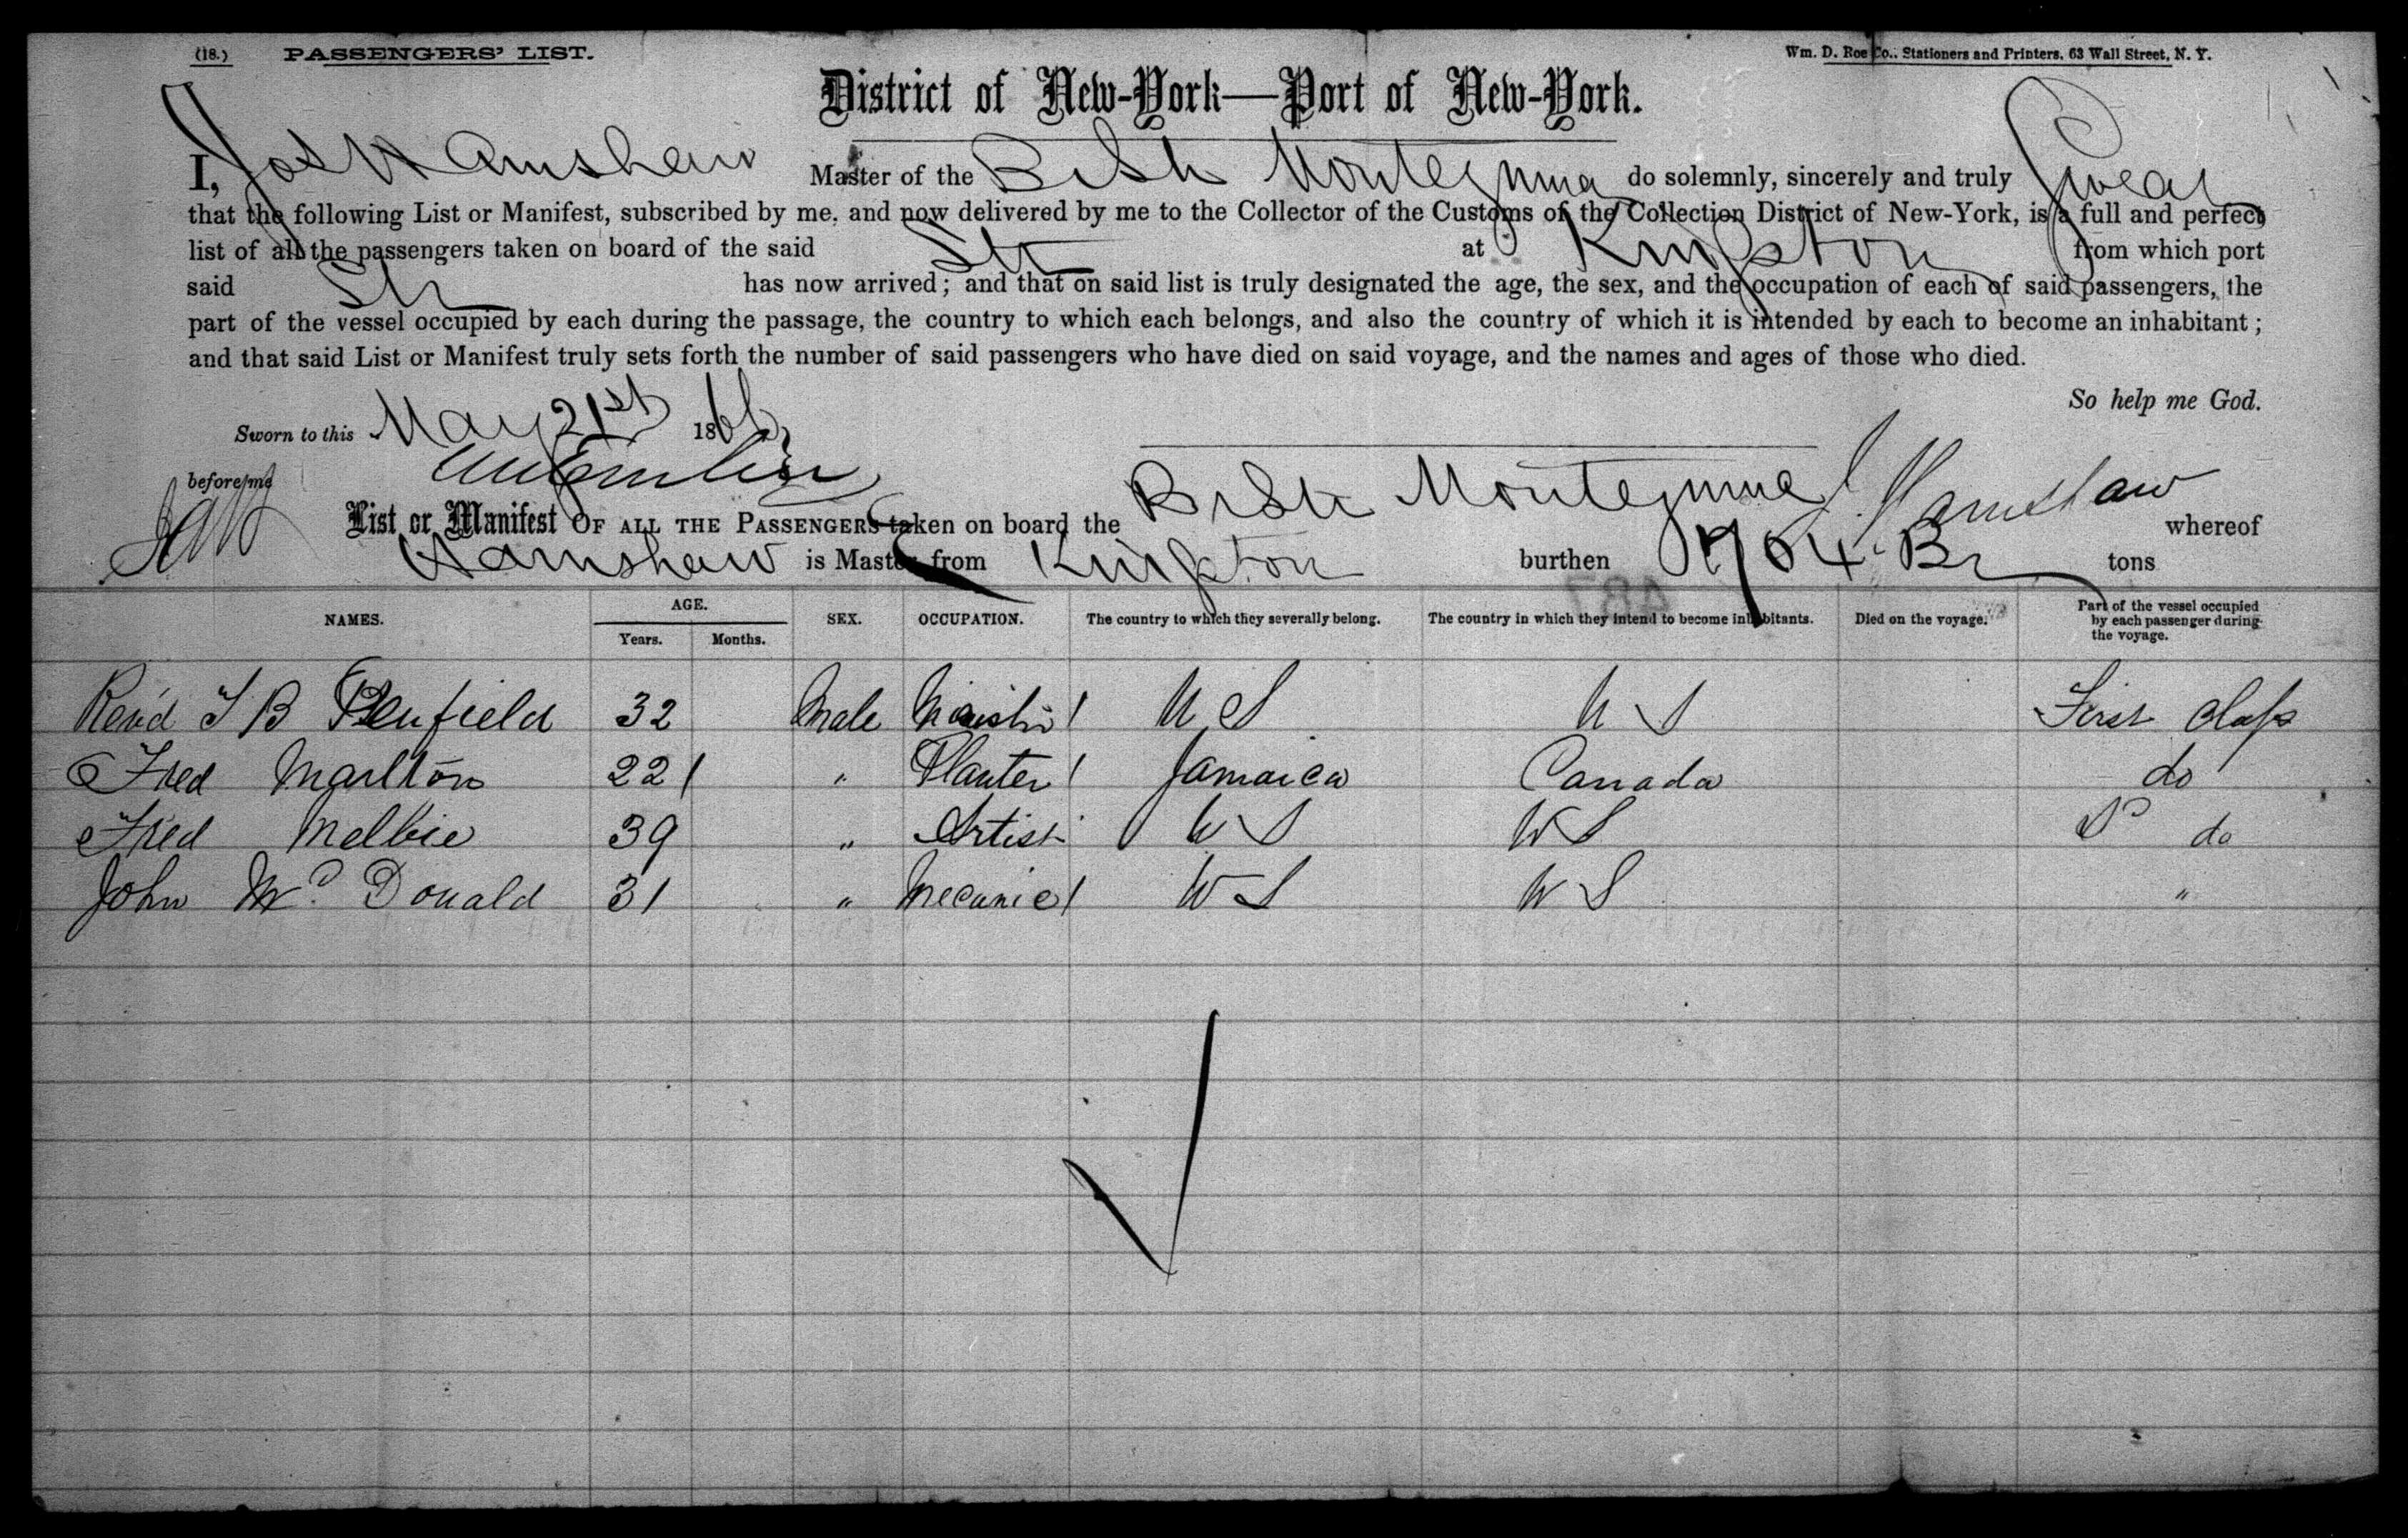 (18.) PASSENGERS' LIST. Wm. D. Roe Co., Stationers and Printers, 63 Wall Street, N. Y.
District of New-York—Port of New-York.
I, Jos Hamshaw Master of the Br Str Montezuma do solemnly, sincerely and truly Swear
that the following List or Manifest, subscribed by me, and now delivered by me to the Collector of the Customs of the Collection District of New-York, is a full and perfect
list of all the passengers taken on board of the said Str at Kingston from which port
said Str has now arrived; and that on said list is truly designated the age, the sex, and the occupation of each of said passengers, the
part of the vessel occupied by each during the passage, the country to which each belongs, and also the country of which it is intended by each to become an inhabitant;
and that said List or Manifest truly sets forth the number of said passengers who have died on said voyage, and the names and ages of those who died.
So help me God.
Sworn to this May 21st 1866
before me
J. Hamshaw
List or Manifest OF ALL THE PASSENGERS taken on board the Br Str Montezuma whereof
Hamshaw is Master, from Kingston burthen 704 Br tons
NAMES. AGE. SEX. OCCUPATION. The country to which they severally belong. The country in which they intend to become inhabitants. Died on the voyage. Part of the vessel occupied by each passenger during the voyage.
Years. Months.
Revd T B Penfield 32 Male Ministr U S U S First Class
Fred Marlton 22 " Planter Jamaica Canada do
Fred Melbie 39 " Artist U S U S do
John Mc Donald 31 " Mecanic U S U S "